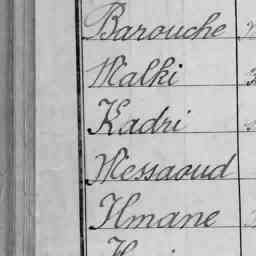 Barouche
Malki
Kadri
Messaoud
Hmane